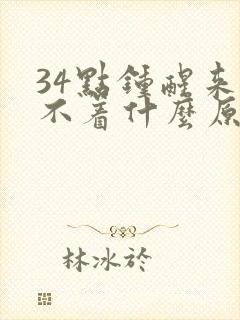 34點鍾醒來
不着什麼原
林冰於